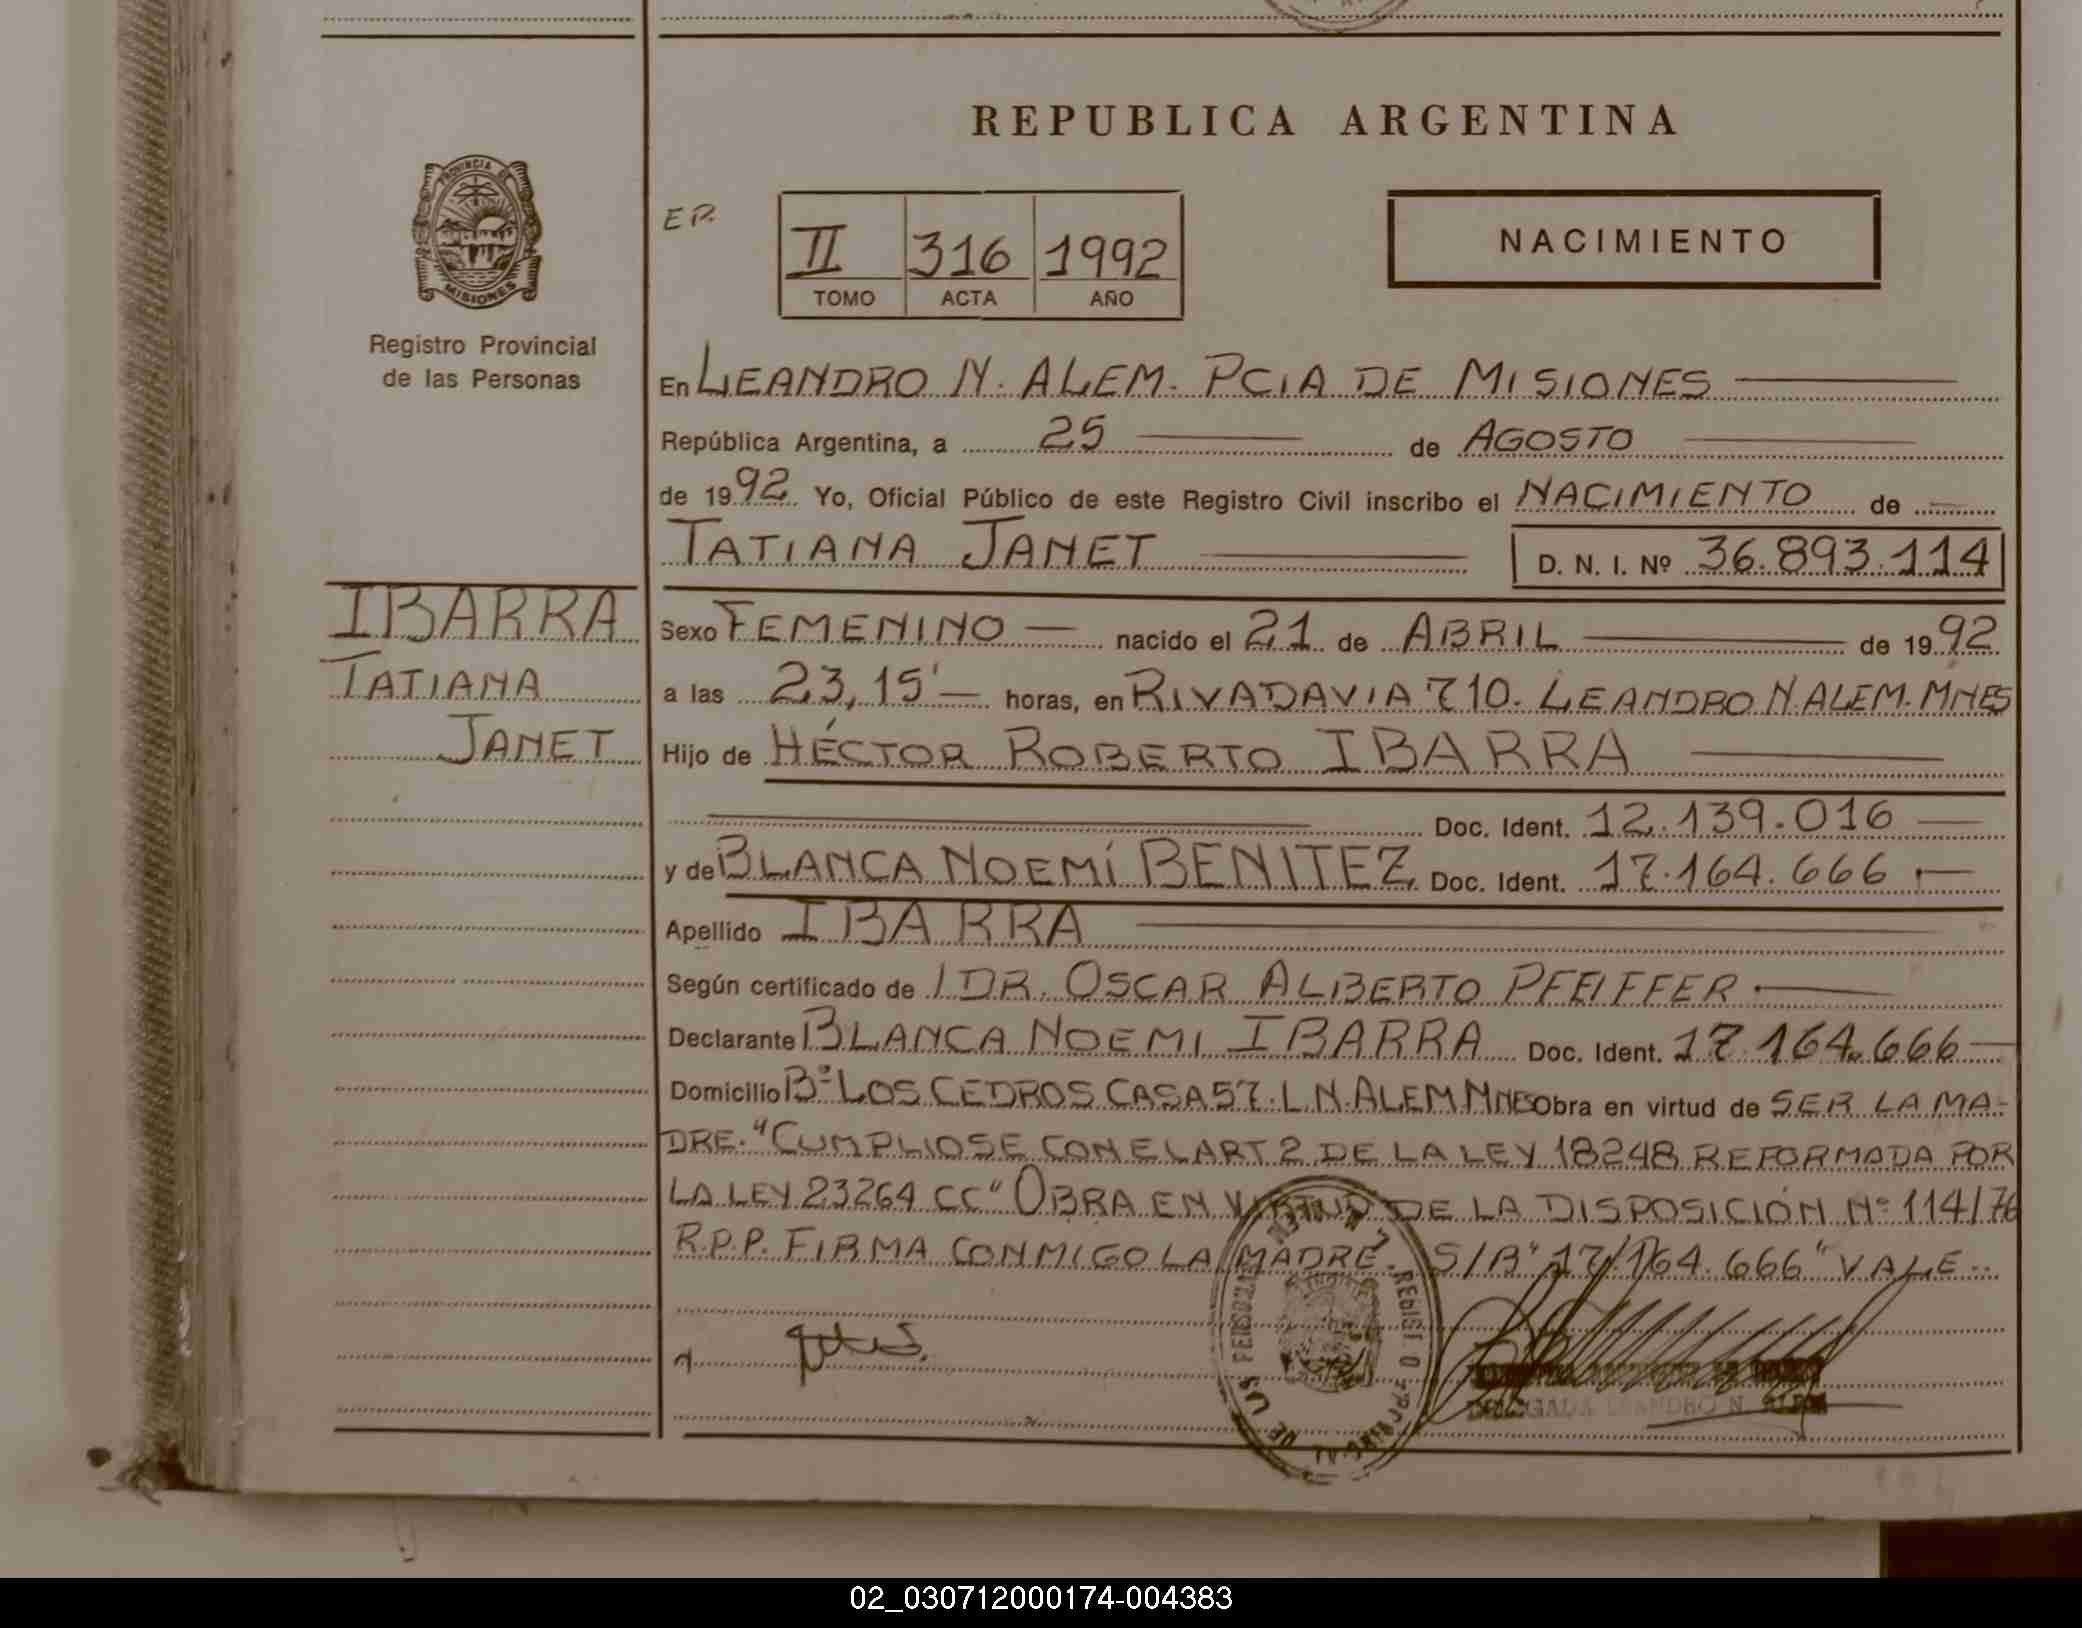 REPUBLICA ARGENTINA
PROVINCIA DE
MISIONES
Registro Provincial
de las Personas
E.P.
II 316 1992
TOMO ACTA AÑO
NACIMIENTO
En LEANDRO N. ALEM. PCIA DE MISIONES
República Argentina, a 25 de AGOSTO
de 1992 Yo, Oficial Público de este Registro Civil inscribo el NACIMIENTO de
TATIANA JANET D. N. I. Nº 36.893.114
IBARRA
TATIANA
JANET
Sexo FEMENINO nacido el 21 de ABRIL de 1992
a las 23,15' horas, en RIVADAVIA 710. LEANDRO N. ALEM. MNES
Hijo de HÉCTOR ROBERTO IBARRA
Doc. Ident. 12.139.016
y de BLANCA NOEMÍ BENITEZ Doc. Ident. 17.164.666
Apellido IBARRA
Según certificado de / DR. OSCAR ALBERTO PFEIFFER
Declarante BLANCA NOEMI IBARRA Doc. Ident. 17.164.666
Domicilio Bº LOS CEDROS CASA 57. L.N. ALEM MNES Obra en virtud de SER LA MA-
DRE. "CUMPLIOSE CON EL ART 2 DE LA LEY 18248 REFORMADA POR
LA LEY 23264 CC" OBRA EN VIRTUD DE LA DISPOSICIÓN Nº 114/76
R.P.P. FIRMA CONMIGO LA MADRE. S/B "17.164.666" VALE..
DELEGADA LEANDRO N. ALEM
02_030712000174-004383